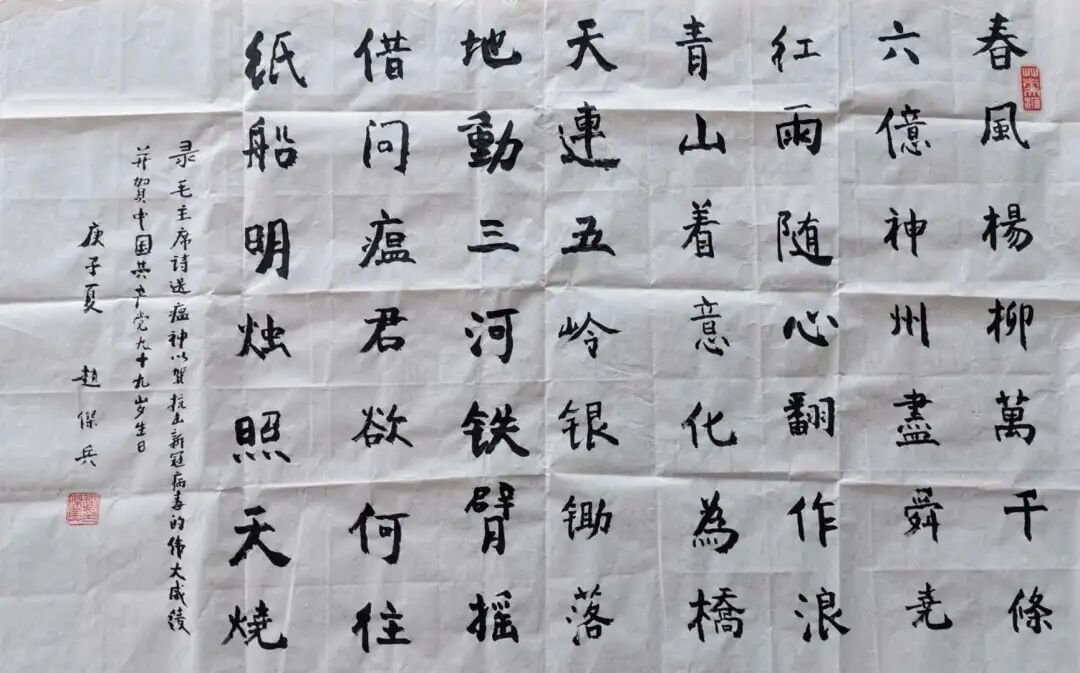 春風楊柳萬千條
六億神州盡舜堯
红雨随心翻作浪
青山着意化為橋
天連五岭银锄落
地動三河铁臂摇
借问瘟君欲何往
纸船明烛照天燒
录毛主席詩送瘟神以贺抗击新冠病毒的伟大成绩
并贺中国共产党九十九岁生日
庚子夏 趙傑兵